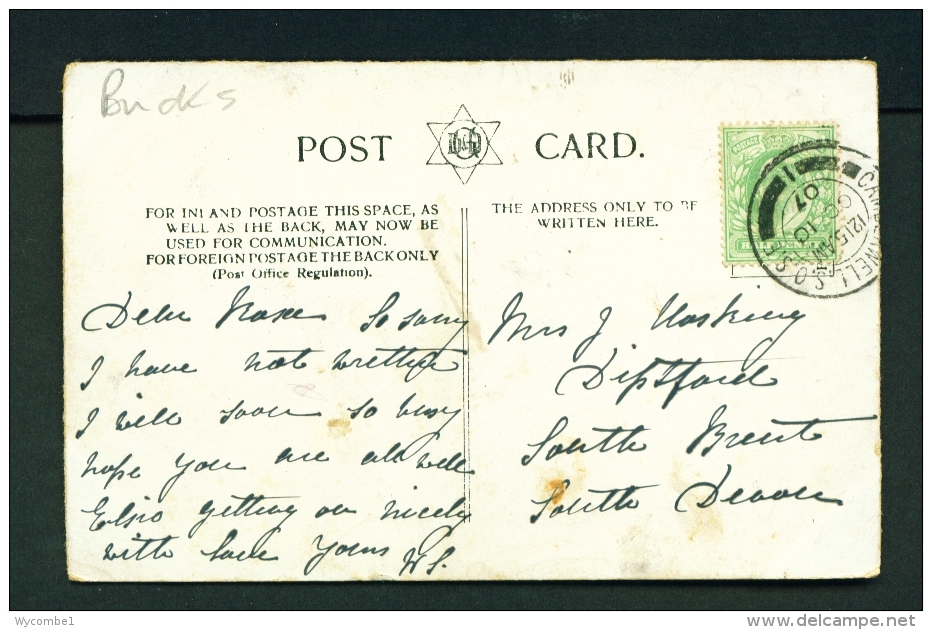 Bucks
POST CARD.
FOR INLAND POSTAGE THIS SPACE, AS
WELL AS THE BACK, MAY NOW BE
USED FOR COMMUNICATION.
FOR FOREIGN POSTAGE THE BACK ONLY
(Post Office Regulation).
THE ADDRESS ONLY TO BE
WRITTEN HERE.
POSTAGE
HALFPENNY
CAMBERWELL S.O. S.E.
1215 AM
OC 10
07
1
Dear so sorry
I have not written
I will soon so busy
hope you are all well
Elsie getting on nicely
with love yours W.S.
Mrs J Hosking
Diptford
South Brent
South Devon
Wycombe1
delcampe.net